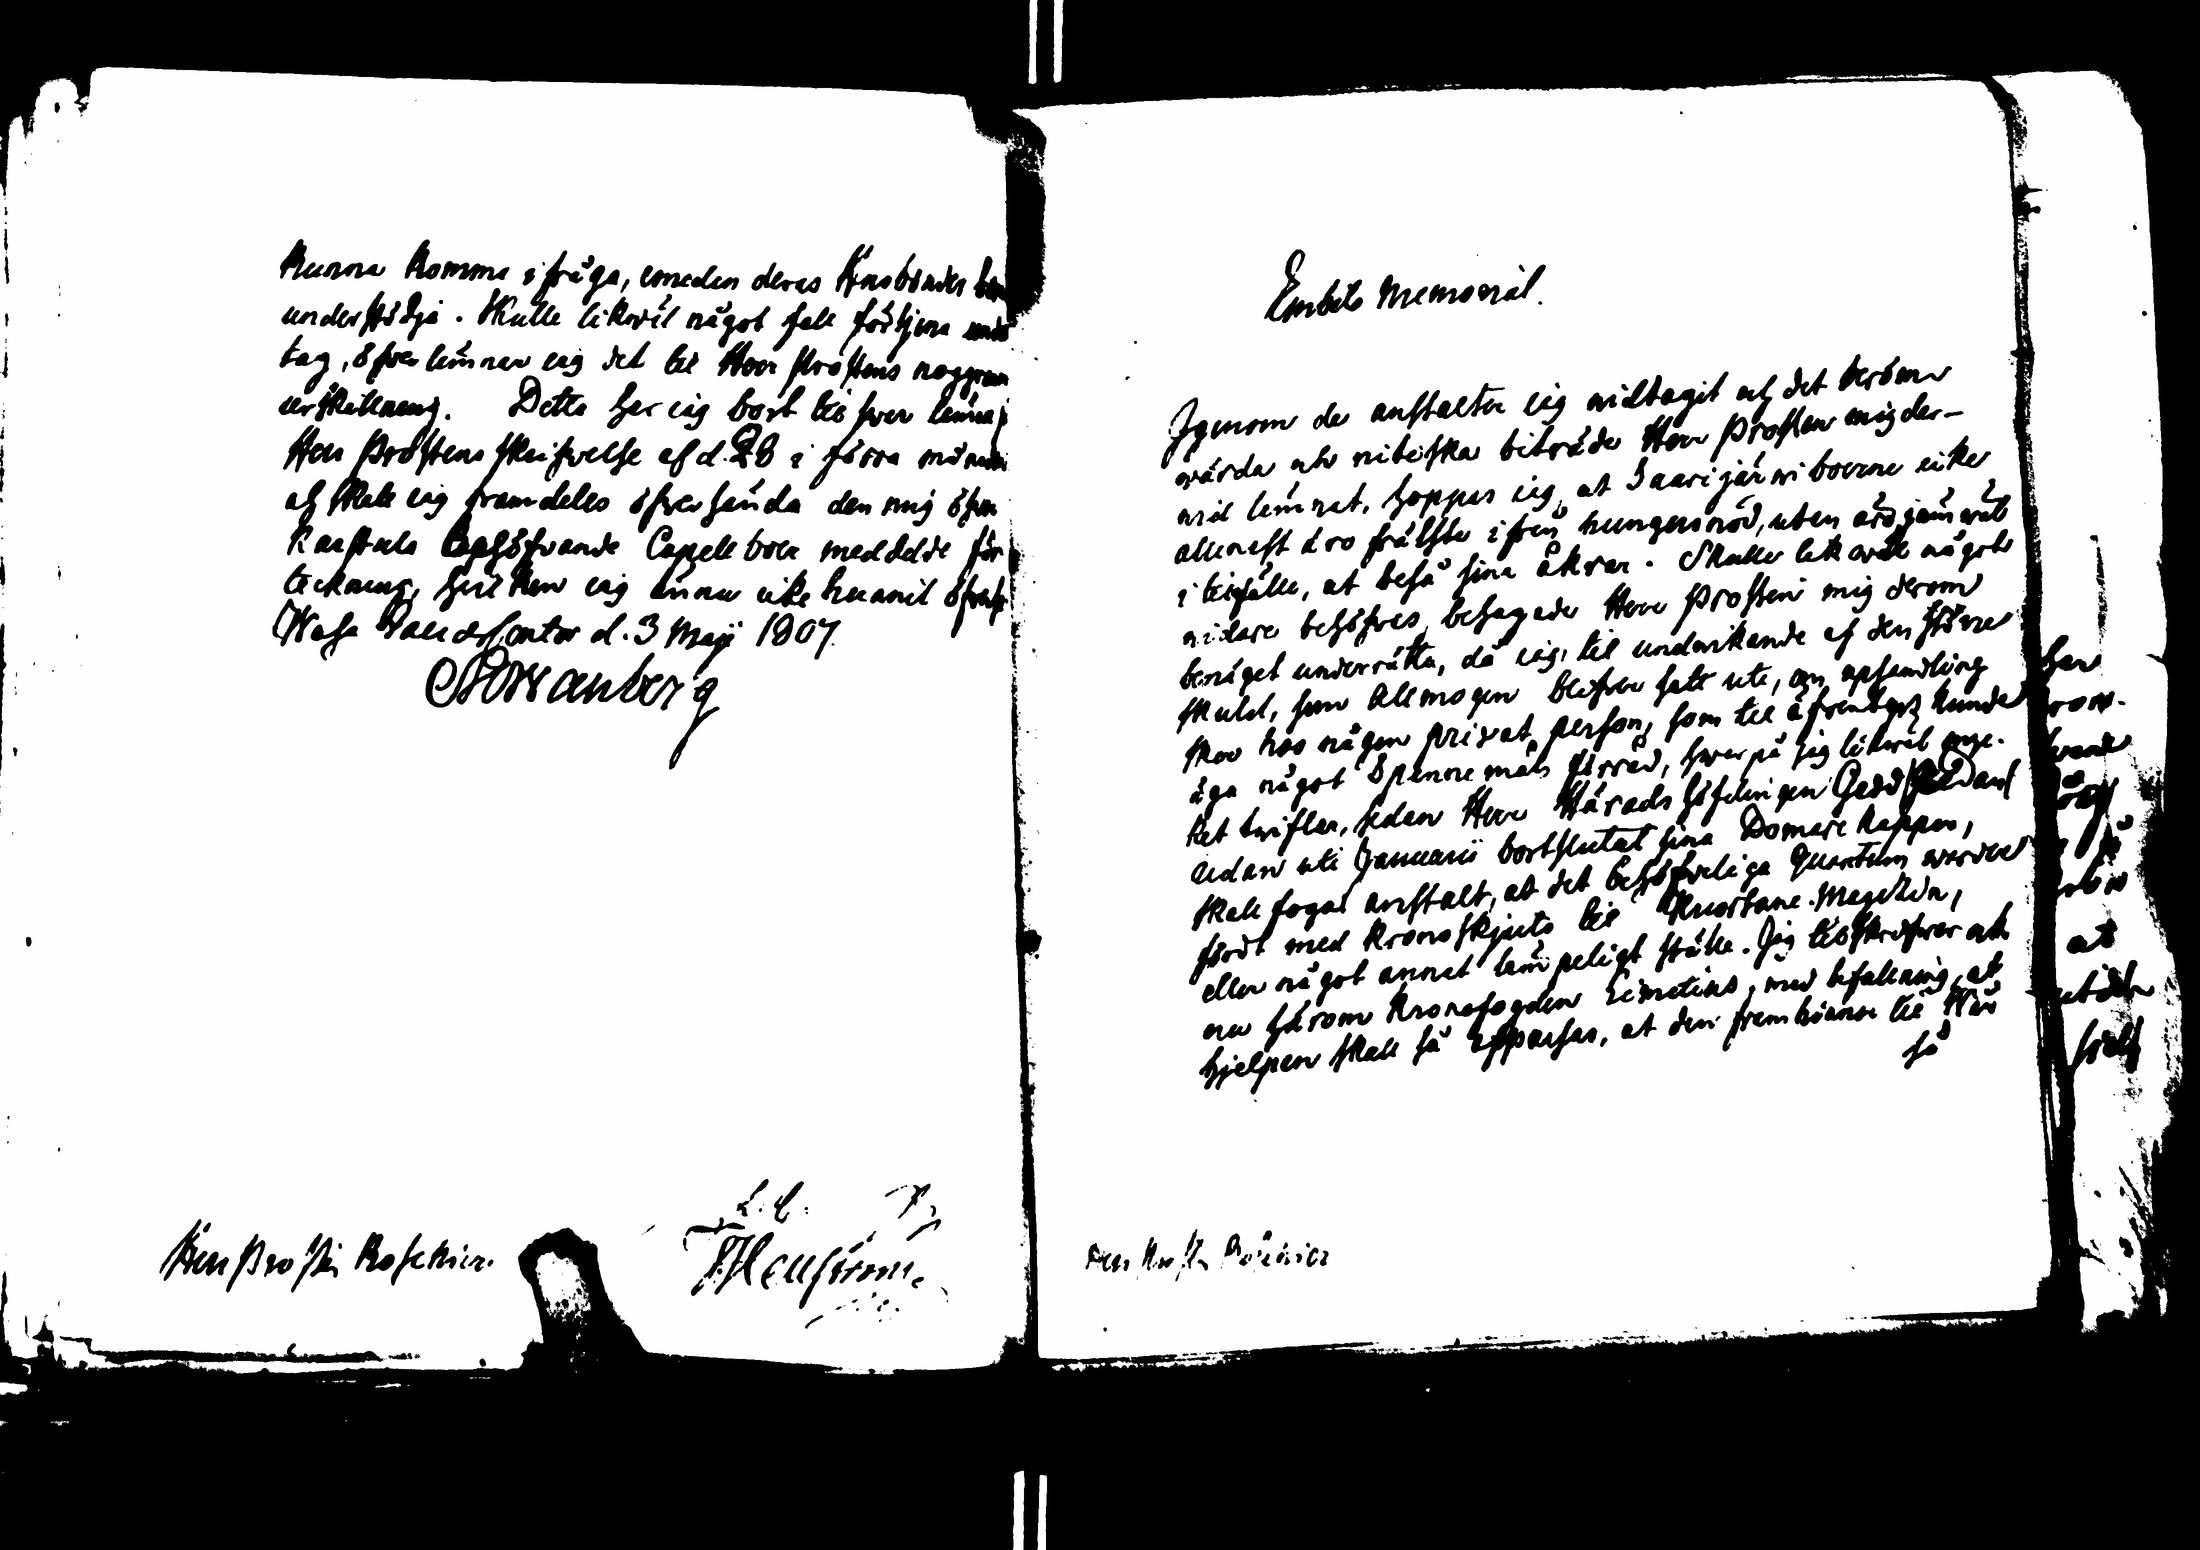 kunna komma i fråga, emedan deras Husbönder
understödja. Skulle likväl något fall förtjena
tag, öfverlämnar jag det till Herr Prostens noggran
urskillning. Detta har jag bort till svar lämna
Herr Prostens skrifvelse af d. 28 i förra månaden
och skall jag framdeles öfversända den mig öfver
Karstula behöfvande Capellboer meddelde för
teckning, hvilken jag ännu icke hunnit
Wasa Landscontor d. 3 Maji 1807.
Wanberg
L. C.
Herr Prosten Roschier.
Embets Memorial.
Igenom de anstalter jag widtagit och det beröm-
wärda och nitiska biträde Herr Prosten mig der-
wid lemnat, hoppas jag, at Saarijärwi boerne icke
allenast äro frälste ifrån hungersnöd, utan ock jämwäl
i tilfälle, at beså sina åkrar. Skulle likwäl något
widare behöfvas, behagade Herr Prosten mig derom
benäget underrätta, då jag, til undwikande af den större
skuld, som Allmogen blefve satt uti, om uphandling
skier hos någon privat person, som til äfventyrs kunde
äga något Spannemåls förråd, hvarpå jag likwäl myc-
ket twiflar, sedan Herr Härads Höfdingen
redan uti Januarii bortslutat sina Domare kappor,
skall foga anstalt, at det behöfveliga quantum warder
fördt med Kronoskjuts til Kuortane Magazin,
eller något annat lämpeligt ställe. Jag tilskrifver ock
nu härom Kronofogden Limatius, med befallning, at
hjelpen skall så afpassas, at den frambringas til
så
Herr Prosten Roschier
har
at
sielf